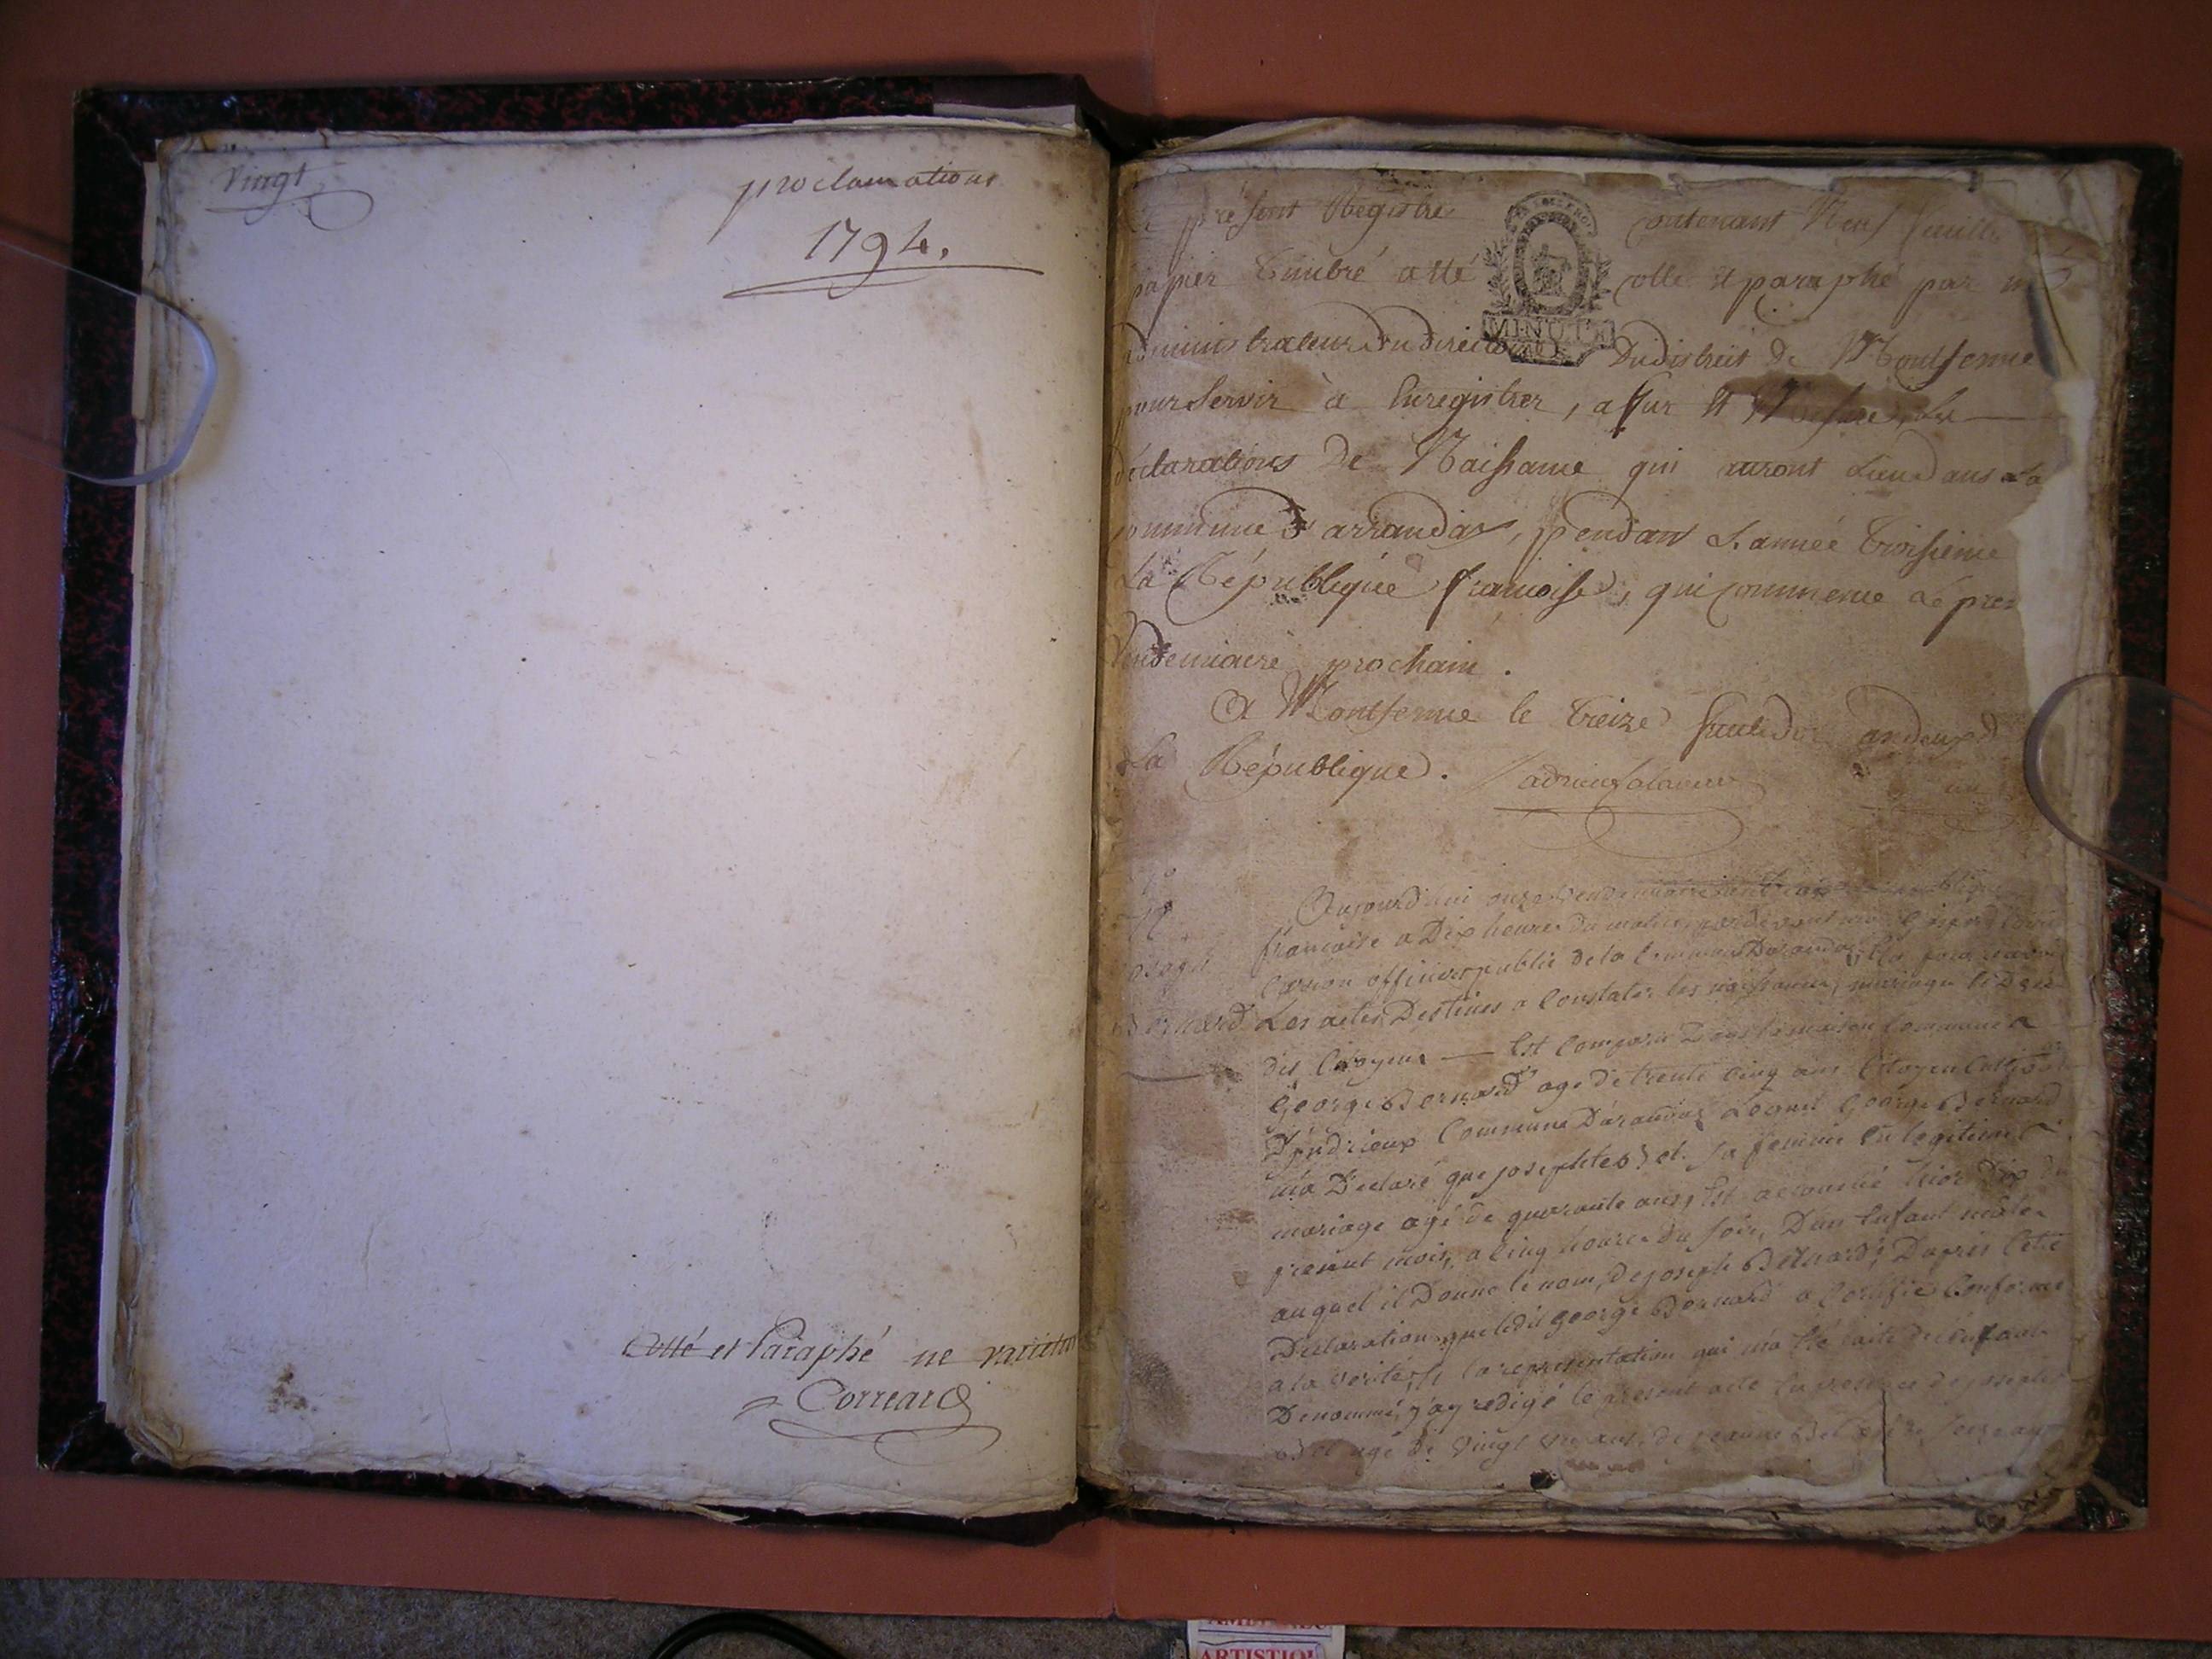 Vingt
proclamations
1794.
Cotté et Paraphé ne varietur
Correard
présent Registre contenant Neuf feuille
papier timbré cotté colle et paraphé par
administrateur du directoire Du district de Montferme
pour Servir à Enregistrer, assur et Mesure, Les
déclarations De Naissance qui auront Lieu dans La
commune d'arrandas, pendant L'année troisieme
La République francoise, qui commence Le pre
Vendemiaire prochain.
A Montferme le treize fructidor an deux d
La République.
MINUTE
Aujourd'hui onze Vendemiaire an trois
francaise a Dix heures du matin pardevant moi
officier public de la Commune Darandas
Bernard Les actes Destinés a Constater les naissances, mariages et Deces
des Citoyens — Est Comparu Dans la maison Commune
George Bernard age de trente cinq ans Citoyen Cultiva
D'indrieux Commune Darandas Lequel George Bernard
ma Declaré que josephte Bel. sa femme En legitime
mariage agé de quarante ans, Est accouché hier dix du
present mois, a cinq heures Du soir, Dun Enfant mâle
auquel il Donne le nom, de joseph Bernard; Dapres Cette
Declaration que ledit George Bernard a Certifié Conforme
a la verité, et la representation qui m'a été faite de l'enfant
Denommé, j'ay redigé le present acte En presence de joseph
Bel agé de Vingt